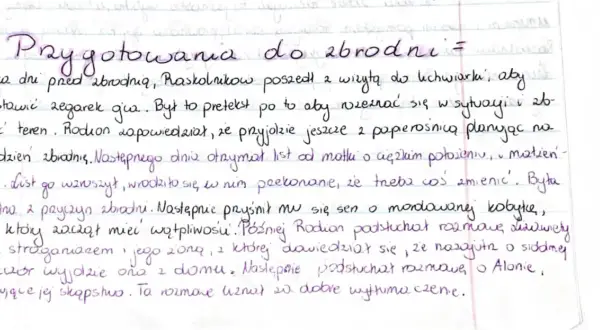 Przygotowania do zbrodni =
a dni przed zbrodnią, Raskolnikow poszedł z wizytą do lichwiarki, aby
tawić zegarek ojca. Był to pretekst po to aby rozeznać się w sytuacji i zb-
ć teren. Rodion zapowiedział, że przyjdzie jeszcze z papierośnicą planując na
dzień zbrodnię. Następnego dnia otrzymał list od matki o ciężkim położeniu, i małżeń-
. List go wzruszył, wrodziło się w nim przekonane, że trzeba coś zmienić. Była
na z przyczyn zbrodni. Następnie przyśnił mu się sen o mordowanej kobyłce,
który zaczął mieć wątpliwości. Później Rodion podsłuchał rozmowę Lizawiety
straganiarzem i jego żoną, z której dowiedział się, że nazajutrz o siódmej
wyjdzie ona z domu. Następnie podsłuchał rozmowę o Alonie,
jej skąpstwo. Ta rozmowę uznał za dobre wytłumaczenie.